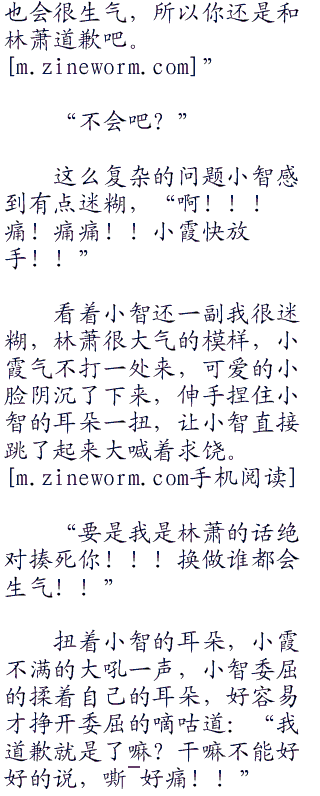 也会很生气，所以你还是和
林萧道歉吧。
[m.zineworm.com]”
“不会吧？”
这么复杂的问题小智感
到有点迷糊，“啊！！！
痛！痛痛！！小霞快放
手！！”
看着小智还一副我很迷
糊，林萧很大气的模样，小
霞气不打一处来，可爱的小
脸阴沉了下来，伸手捏住小
智的耳朵一扭，让小智直接
跳了起来大喊着求饶。
[m.zineworm.com手机阅读]
“要是我是林萧的话绝
对揍死你！！！换做谁都会
生气！！”
扭着小智的耳朵，小霞
不满的大吼一声，小智委屈
的揉着自己的耳朵，好容易
才挣开委屈的嘀咕道：“我
道歉就是了嘛？干嘛不能好
好的说，嘶¯好痛！！”